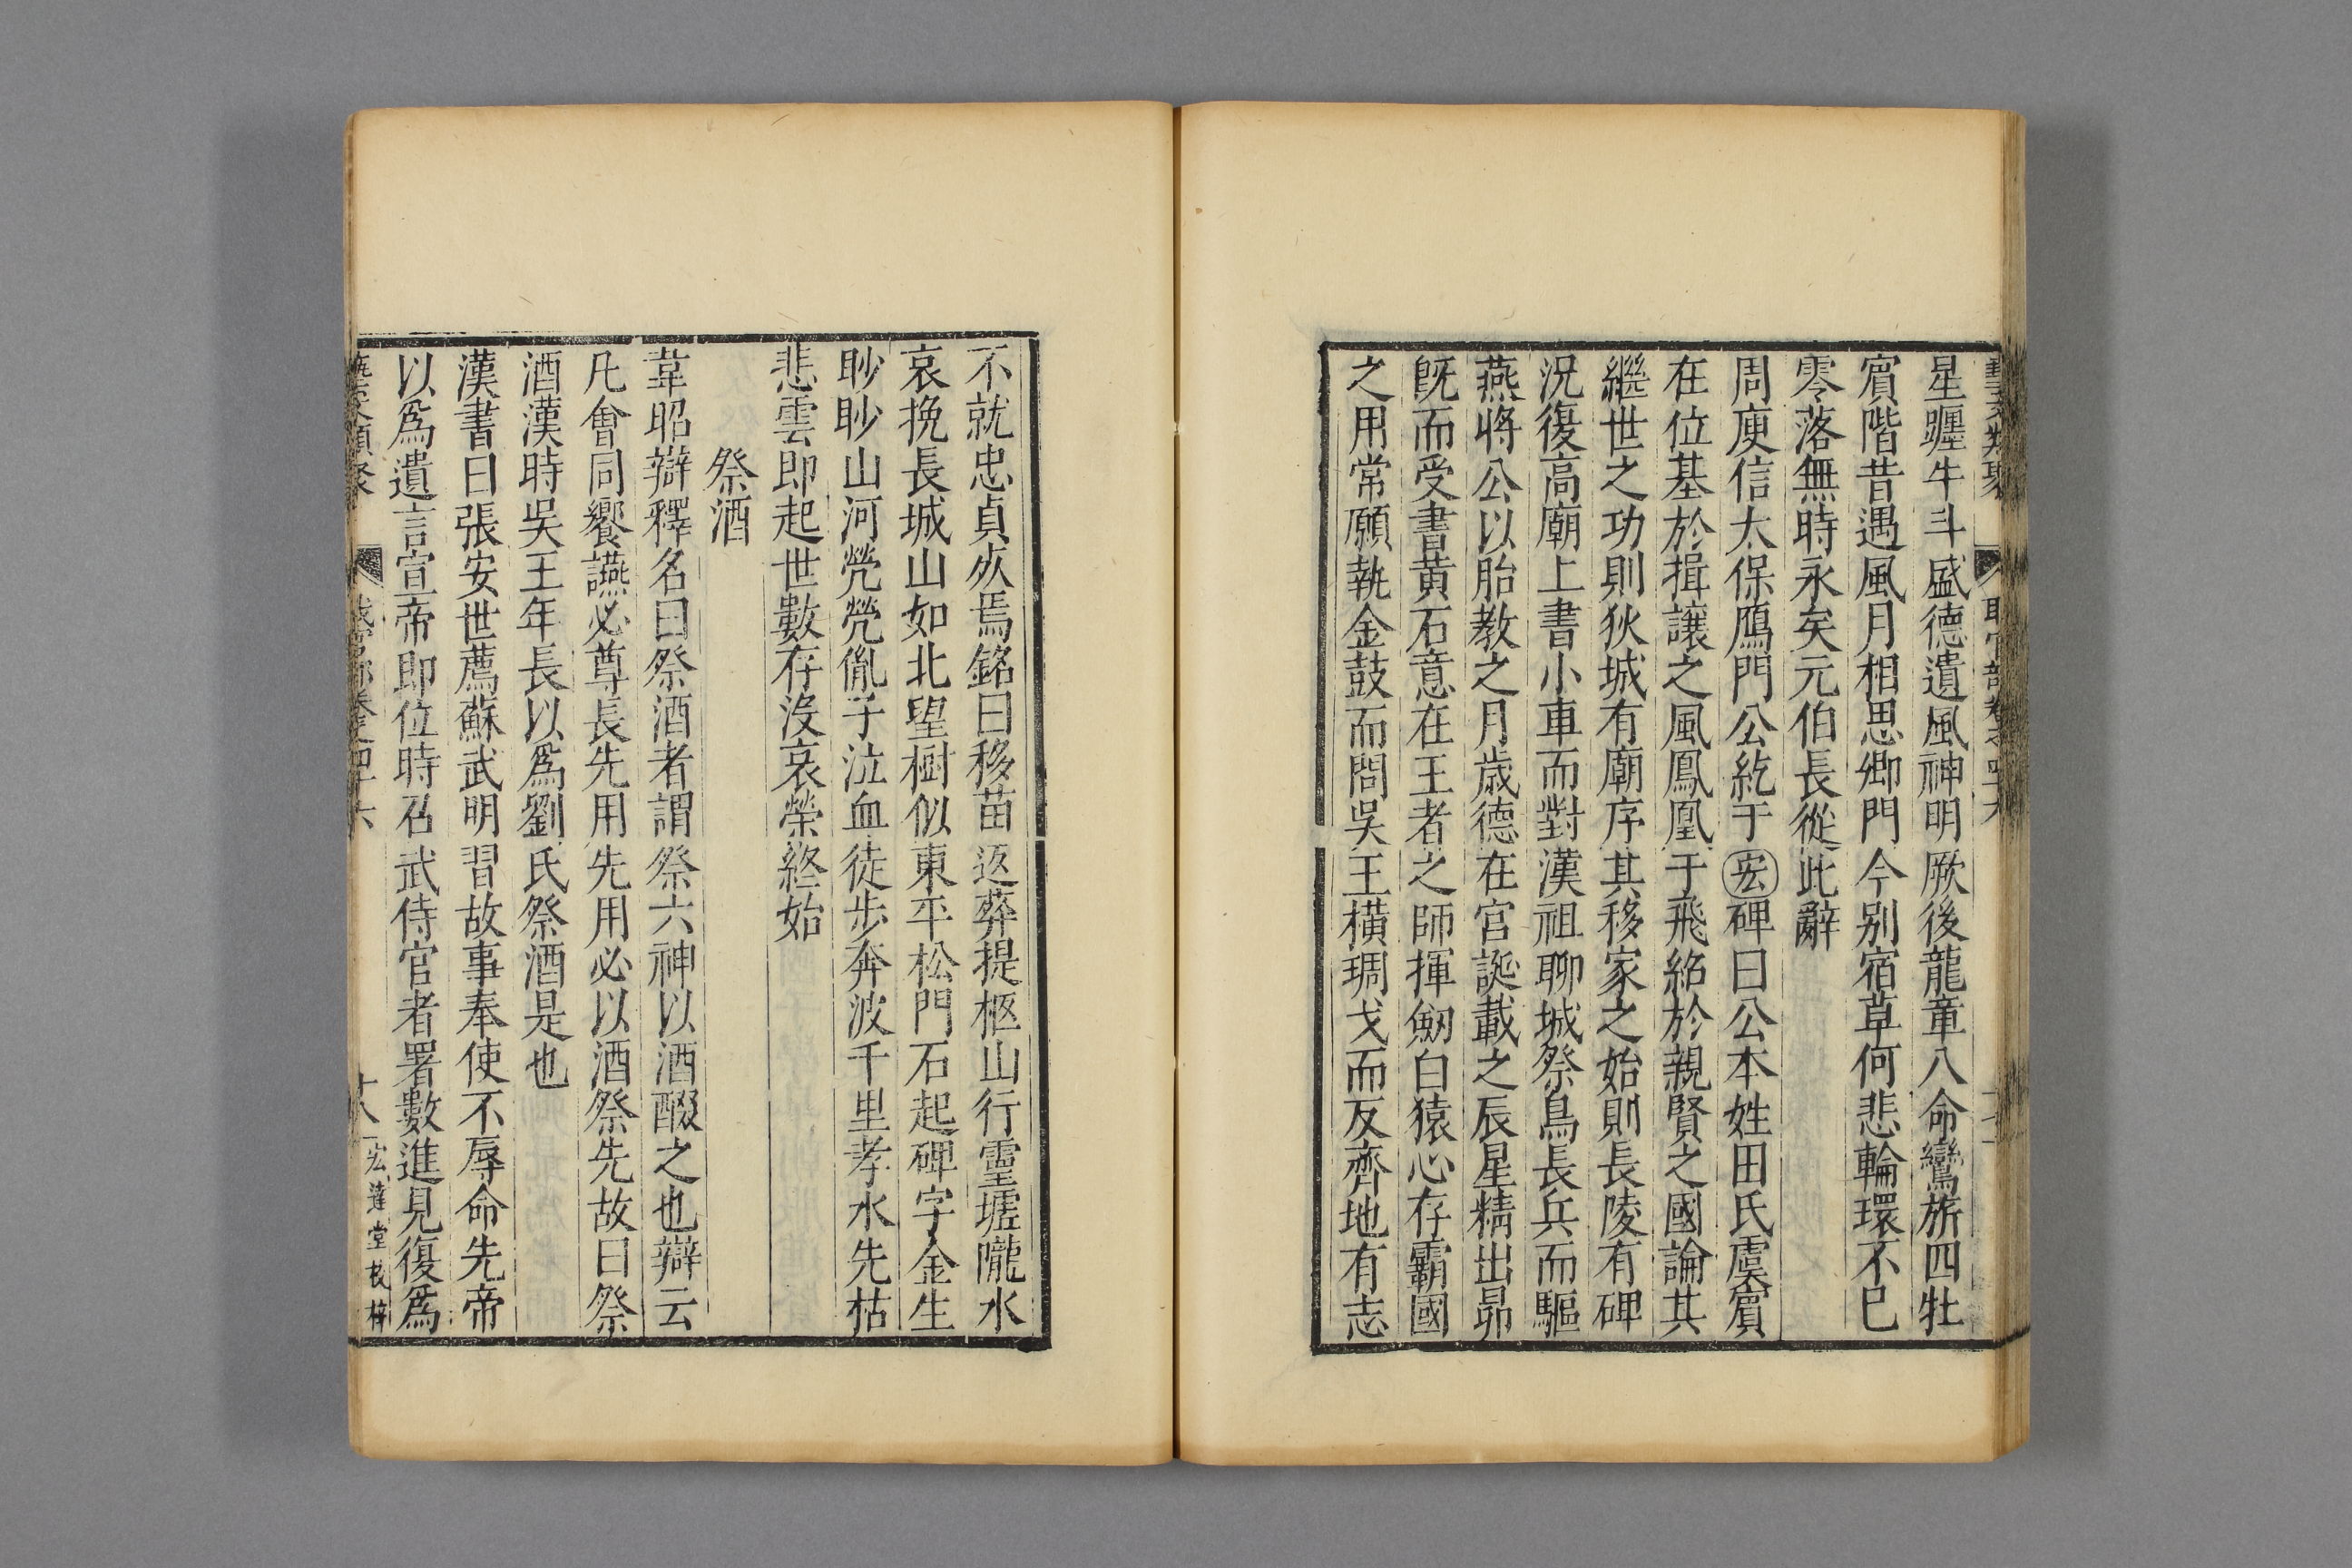 藝文類聚 職官部卷之四十六 十七
星躔牛斗盛德遺風神明厥後龍章八命鸞旂四牡
賓階昔遇風月相思鄉門今别宿草何悲輪環不已
零落無時永矣元伯長從此辭
周庾信太保鴈門公紇于宏碑曰公本姓田氏虞賓
在位基於揖讓之風鳳凰于飛紹於親賢之國論其
繼世之功則狄城有廟序其移家之始則長陵有碑
況復高廟上書小車而對漢祖聊城祭鳥長兵而驅
燕將公以胎教之月歲德在官誕載之辰星精出昴
旣而受書黄石意在王者之師揮劒白猿心存霸國
之用常願執金鼓而問吳王橫琱戈而反齊地有志
不就忠貞死焉銘曰移苗返葬提柩山行靈壚隴水
哀挽長城山如北望樹似東平松門石起碑字金生
眇眇山河煢煢胤子泣血徒步奔波千里孝水先枯
悲雲即起世數存沒哀榮終始
祭酒
韋昭辯釋名曰祭酒者謂祭六神以酒醊之也辯云
凡會同饗讌必尊長先用先用必以酒祭先故曰祭
酒漢時吳王年長以爲劉氏祭酒是也
漢書曰張安世薦蘇武明習故事奉使不辱命先帝
以爲遺言宣帝即位時召武侍官者署數進見復爲
藝文類聚 職官部卷之四十六 十八 宏達堂校梓